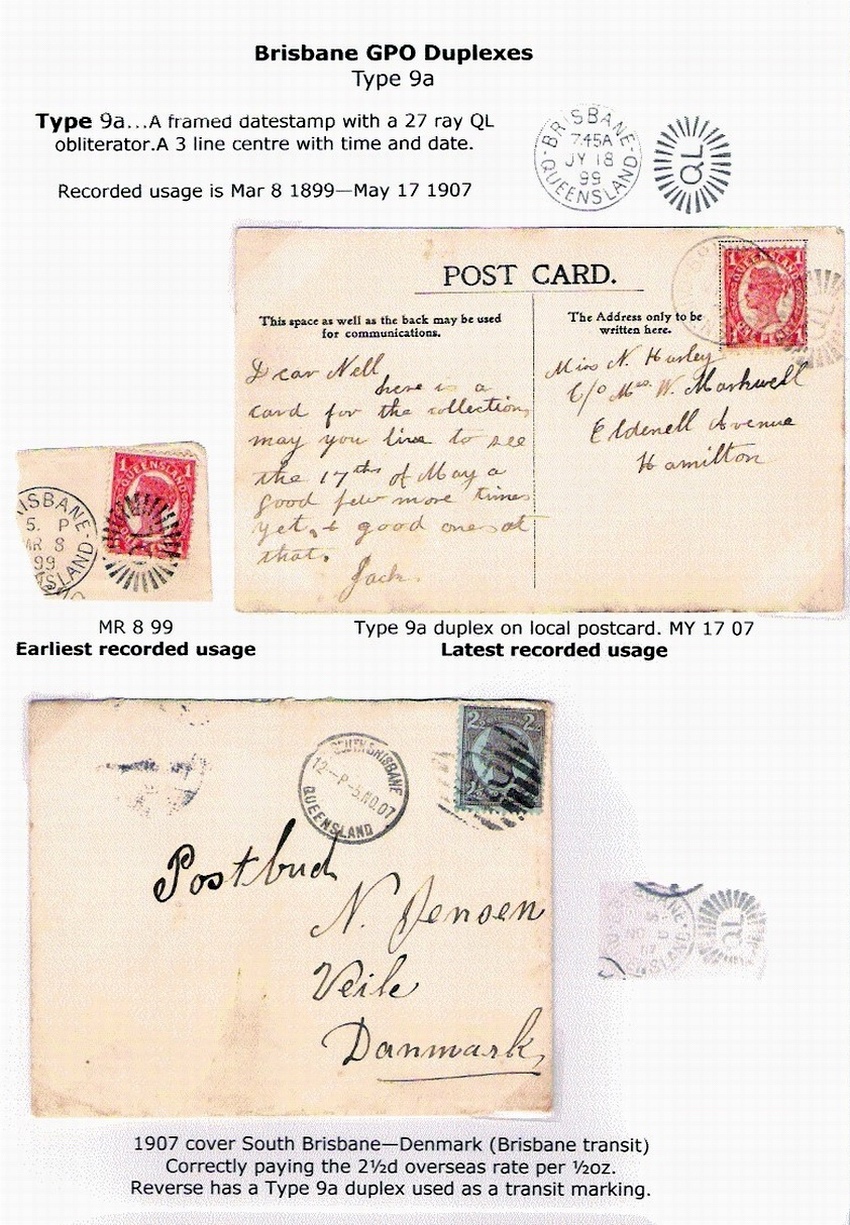 Brisbane GPO Duplexes
Type 9a
Type 9a...A framed datestamp with a 27 ray QL
obliterator.A 3 line centre with time and date.
Recorded usage is Mar 8 1899—May 17 1907
BRISBANE
7.45A
JY 18
99
QUEENSLAND
QL
POST CARD.
This space as well as the back may be used
for communications.
The Address only to be
written here.
1 1
QUEENSLAND
ONE PENNY
QL
Dear Nell
here is a
card for the collection,
may you live to see
the 17ths of May a
good few more times
yet, & good ones at
that.
Jack.
Miss N. Hurley
C/o Mrs. W. Markwell
Eldenell Avenue
Hamilton
1 1
QUEENSLAND
ISBANE
5. P
AR 8
99
SLAND
MR 8 99
Earliest recorded usage
Type 9a duplex on local postcard. MY 17 07
Latest recorded usage
SOUTH BRISBANE
12—P—5.NO.07
QUEENSLAND
2½ 2½
Postbud
N. Jensen
Veile
Danmark
QL
1907 cover South Brisbane—Denmark (Brisbane transit)
Correctly paying the 2½d overseas rate per ½oz.
Reverse has a Type 9a duplex used as a transit marking.